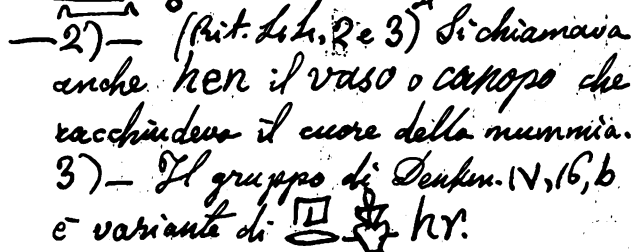 —2)— (Rit. L.L, 2 e 3) Si chiamava
anche hen il vaso o canopo che
racchiudeva il cuore della mummia.
3)— Il gruppo di Denkm. IV, 16, b
è variante di hr.